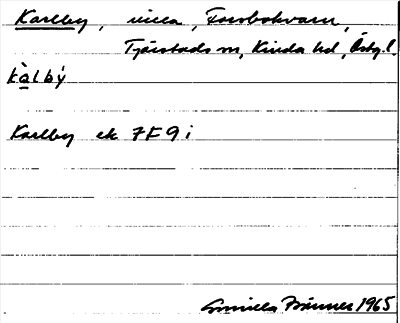 Karlby, villa, Forsbokvarn,
Tjärstads sn, Kinda hd, Östg.l.
kàlbý
Karlby ek 7F9i
Gunilla Fränne 1965